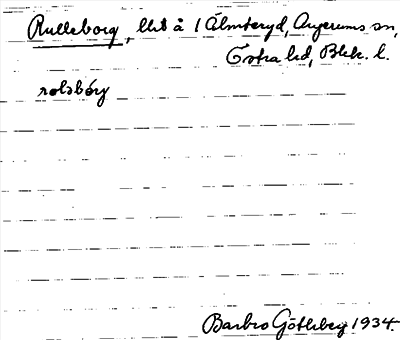 Rulleborg, lht å 1 Älmteryd, Augerums sn,
Östra hd, Blek. l.
rolsbórg
Barbro Götlberg 1934.